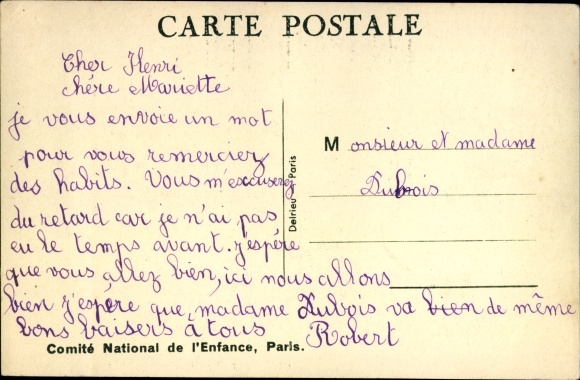 CARTE POSTALE
Cher Henri
chère Mariette
je vous envoie un mot
pour vous remerciez
des habits. Vous m'excuserez
du retard car je n'ai pas
eu le temps avant. j'espére
que vous allez bien, ici nous allons
bien j'espère que madame Dubois va bien de même
bons baisers à tous Robert
Delrieu - Paris
Monsieur et madame
Dubois
Comité National de l'Enfance, Paris.